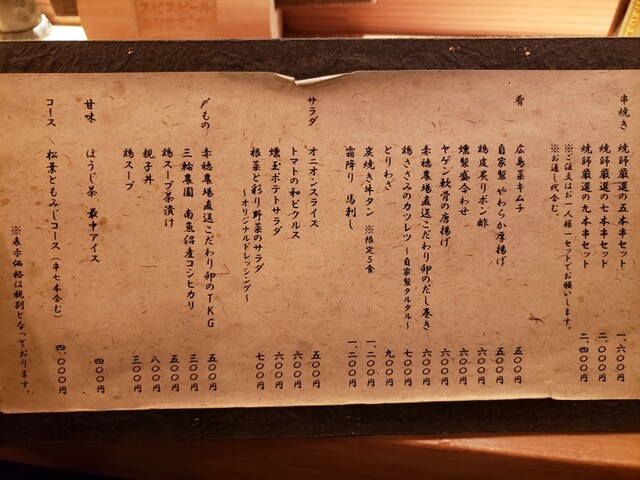 串焼き
焼師厳選の五本串セット 一、六〇〇円
焼師厳選の七本串セット 二、〇〇〇円
焼師厳選の九本串セット 二、四〇〇円
※ご注文はお一人様一セットでお願いします。
※お通し代含む。
肴
広島菜キムチ 五〇〇円
自家製 やわらか厚揚げ 五〇〇円
鶏皮炙りポン酢 六〇〇円
燻製盛合わせ 六〇〇円
ヤゲン軟骨の唐揚げ 六〇〇円
赤穂農場直送こだわり卵のだし巻き 六〇〇円
鶏ささみのカツレツ 〜自家製タルタル〜 七〇〇円
とりわさ 九〇〇円
炭焼き牛タン ※限定5食 一、二〇〇円
霜降り 馬刺し 一、二〇〇円
サラダ
オニオンスライス 五〇〇円
トマトの和ピクルス 六〇〇円
燻玉ポテトサラダ 六〇〇円
根菜と彩り野菜のサラダ 七〇〇円
〜オリジナルドレッシング〜
〆もの
赤穂農場直送こだわり卵のTKG 五〇〇円
三輪農園 南魚沼産コシヒカリ 三〇〇円
鶏スープ茶漬け 五〇〇円
親子丼 八〇〇円
鶏スープ 三〇〇円
甘味
ほうじ茶 最中アイス 四〇〇円
コース
松葉ともみじコース(串七本含む) 四、〇〇〇円
※表示価格は税別となっております。